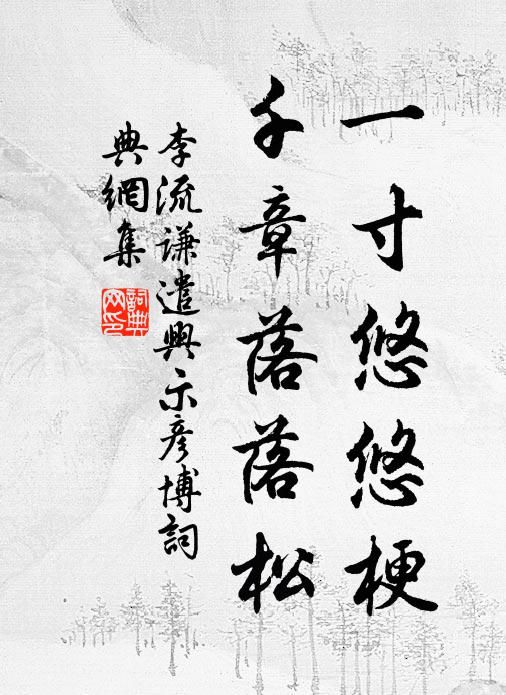 一寸悠悠梗
千章落落松
李流谦遣興示彥博詞
典網集
詞典網印